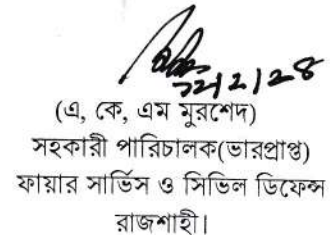 (এ, কে, এম মুরশেদ)
সহকারী পারিচালক(ভারপ্রাপ্ত)
ফায়ার সার্ভিস ও সিভিল ডিফেন্স
রাজশাহী।